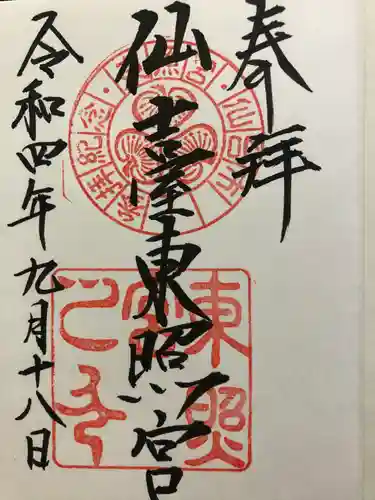 奉拝
仙臺東照宮
令和四年九月十八日
東照
宮
之印